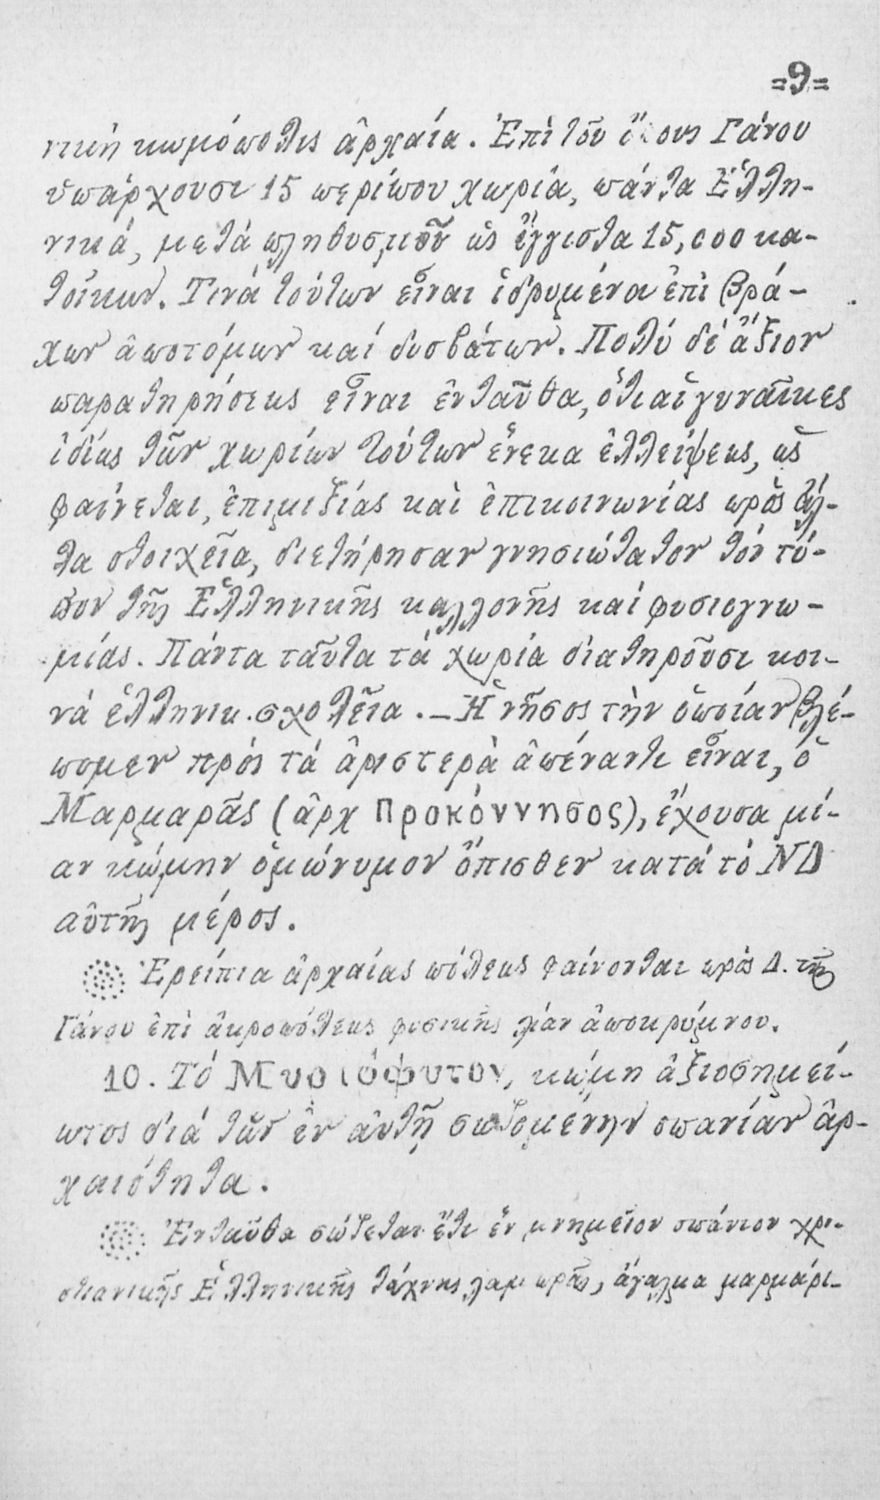 =9=
νική κωμόπολις ἀρχαία. Ἐπὶ τοῦ ὄρους Γάνου
ὑπάρχουσι 15 περίπου χωρία, πάντα Ἑλλη-
νικά, μετά πληθυσμοῦ ὡς ἔγγιστα 15,000 κα-
τοίκων. Τινά τούτων εἶναι ἱδρυμένα ἐπὶ βρά-
χων ἀποτόμων καί δυσβάτων. Πολύ δέ ἄξιον
παρατηρήσεως εἶναι ἐνταῦθα, ὅτι αἱ γυναῖκες
ἰδίως τῶν χωρίων τούτων ἕνεκα ἐλλείψεως, ὡς
φαίνεται, ἐπιμιξίας καὶ ἐπικοινωνίας πρὸς ἄλ-
λα στοιχεῖα, διετήρησαν γνησιώτατον τόν τύ-
πον τῆς Ἑλληνικῆς καλλονῆς καί φυσιογνω-
μίας. Πάντα ταῦτα τά χωρία διατηροῦσι κοι-
νά ἑλληνικ. σχολεῖα. – Ἡ νῆσος τὴν ὁποίαν βλέ-
πομεν πρός τά ἀριστερὰ ἀπέναντι εἶναι, ὁ
Μαρμαρᾶς (ἀρχ Προκόννησος), ἔχουσα μί-
αν κώμην ὁμώνυμον ὄπισθεν κατά τό ΝΔ
αὐτῆς μέρος.
Ἐρείπια ἀρχαίας πόλεως φαίνονται πρὸς Δ. τῆς
Γάνου ἐπὶ ἀκροπόλεως φυσικῆς λίαν ἀποκρήμνου.
10. Τό Μυριόφυτον, κώμη ἀξιοσημεί-
ωτος διά τῶν ἐν αὐτῇ σωζομένην σπανίαν ἀρ-
χαιότητα.
Ἐνταῦθα σώζεται ἔτι ἕν μνημεῖον σπάνιον χρι-
στιανικῆς Ἑλληνικῆς τέχνης λαμπρᾶς, ἄγαλμα μαρμάρι-